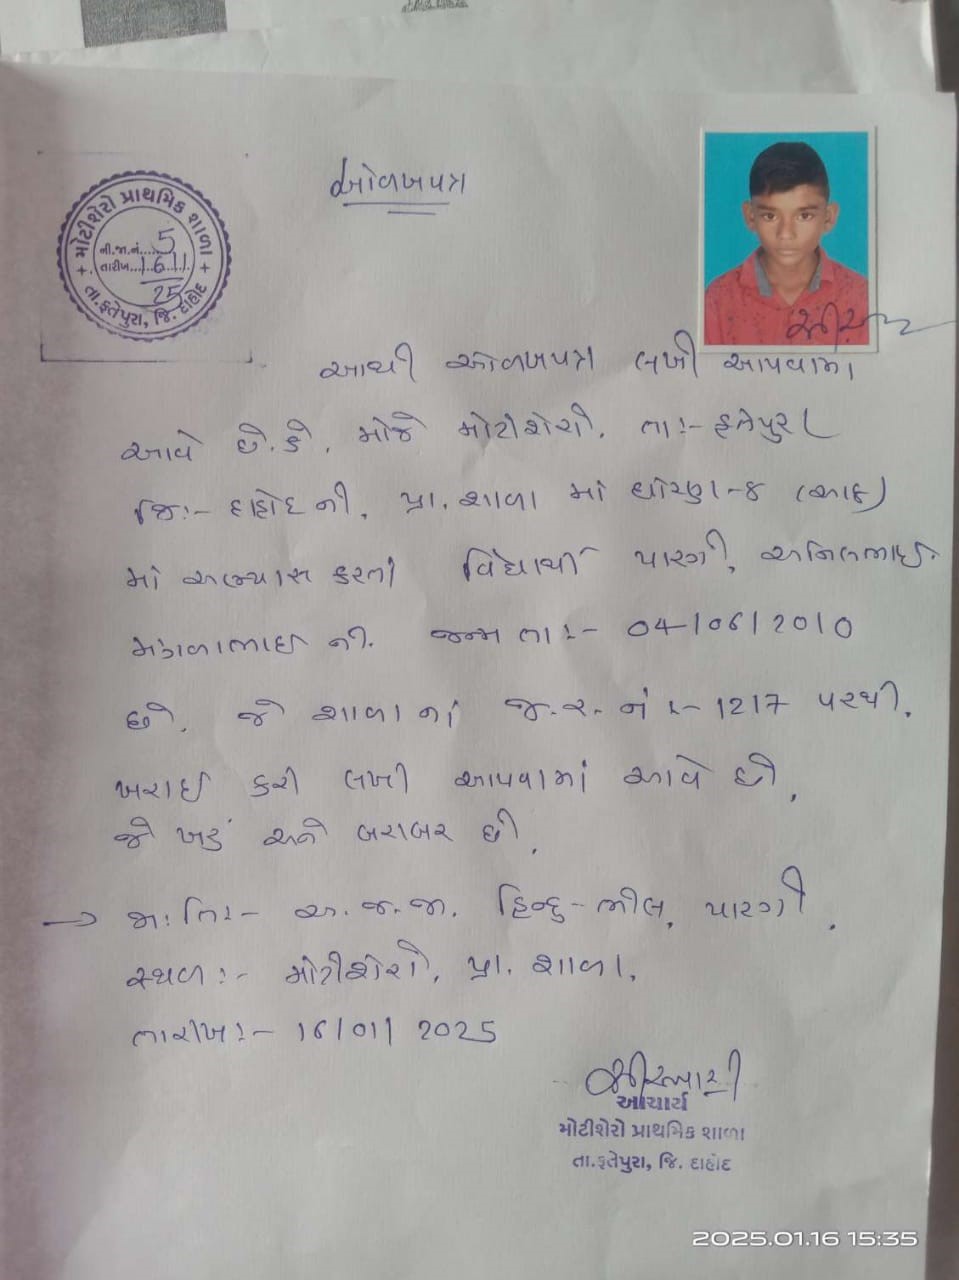 ઓળખપત્ર
મોટીશેરો પ્રાથમિક શાળા
ની.જા.નં.....5
તારીખ...16/1/
25
તા.ફતેપુરા, જિ. દાહોદ
આથી ઓળખપત્ર લખી આપવામાં
આવે છે.કે, મોજે મોટીશેરો, તા:- ફતેપુરા
જિ:- દાહોદ ની, પ્રા. શાળા માં ધોરણ-૮ (આઠ)
માં અભ્યાસ કરતાં વિદ્યાર્થી પારગી, અનિલભાઈ
મંગળાભાઈ ની. જન્મ તા:- 04/06/2010
છે, જે શાળાનાં જ.ર.નં:- 1217 પરથી.
ખરાઈ કરી લખી આપવામાં આવે છે,
જે ખરું અને બરાબર છે,
→ જા:તિ:- અ.જ.જા. હિન્દુ-ભીલ, પારગી.
સ્થળ:- મોટીશેરો, પ્રા. શાળા,
તારીખ:- 16/01/2025
આચાર્ય
મોટીશેરો પ્રાથમિક શાળા
તા.ફતેપુરા, જિ. દાહોદ
2025.01.16 15:35